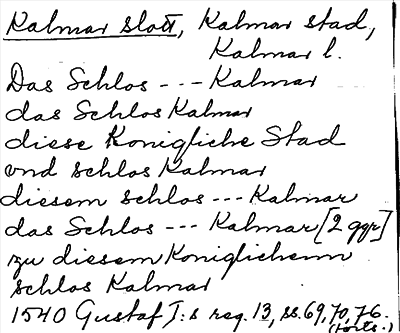 Kalmar slott, Kalmar stad,
Kalmar l.
Das Schlos --- Kalmar
das Schlos Kalmar
diese Konigliche Stad
vnd schlos Kalmar
diesem schlos --- Kalmar
das Schlos --- Kalmar [2 ggr]
zu diesem Koniglichenn
schlos Kalmar
1540 Gustaf I:s reg. 13, ss. 69, 70, 76.
(forts.)